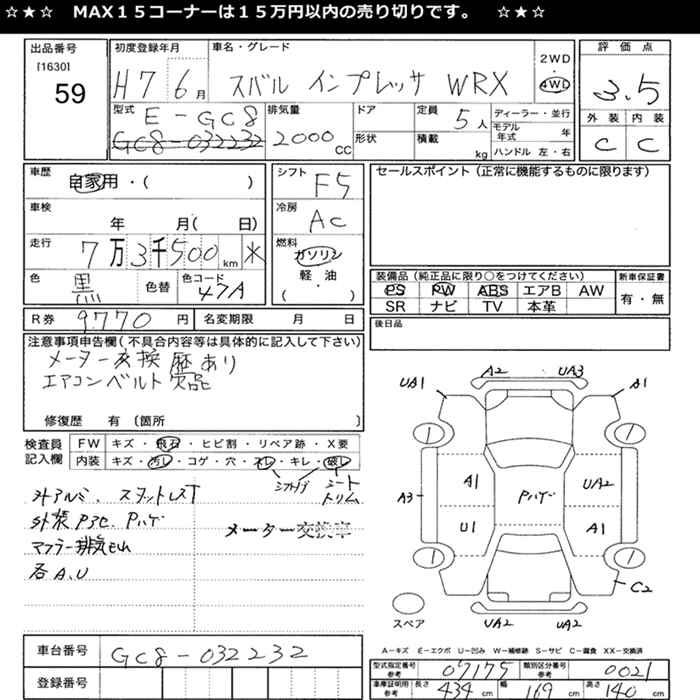 ☆ ★ ☆ MAX１５コーナーは１５万円以内の売り切りです。 ☆ ★ ☆
出品番号
[1630]
59
初度登録年月
H7 6月
車名・グレード
スバル インプレッサ WRX
2WD
4WD
評価点
3.5
外装 内装
C C
型式
E-GC8
GC8-032232
排気量
2000 CC
ドア
形状
定員
5人
積載
kg
ディーラー・並行
モデル年式 年
ハンドル 左・右
車歴
自家用・( )
車検
年 月( 日)
走行
7万3千500km ※
色
黒
色替
色コード
47A
シフト
F5
冷房
AC
燃料
ガソリン
軽・油
( )
セールスポイント（正常に機能するものに限ります）
装備品（純正品に限り○をつけてください）
PS PW ABS エアB AW
SR ナビ TV 本革
新車保証書
有・無
R券
9770 円
名変期限 月 日
後日品
注意事項申告欄（不具合内容等は具体的に記入して下さい）
メーター交換歴あり
エアコンベルト欠品
修復歴 有〔箇所 〕
検査員記入欄
FW キズ・飛石・ヒビ割・リペア跡・X要
内装 キズ・汚レ・コゲ・穴・スレ・キレ・破レ
シフトノブ シート
トリム
外アルミ、スタットレスT
外張P3セ、Pハゲ
マフラー排気もれ
各A.U
メーター交換車
A2 UA3
UA1 A1
A3 A1 Pハゲ UA2
U1 A1
C2
UA2 UA2
1 1
1 1
スペア
A－キズ E－エクボ U－凹み W－補修跡 S－サビ C－腐食 XX－交換済
車台番号
GC8-032232
登録番号
型式指定番号 参考
07175
類別区分番号 参考
0021
車庫証明用 参考
長さ 434 cm 幅 169 cm 高さ 140 cm